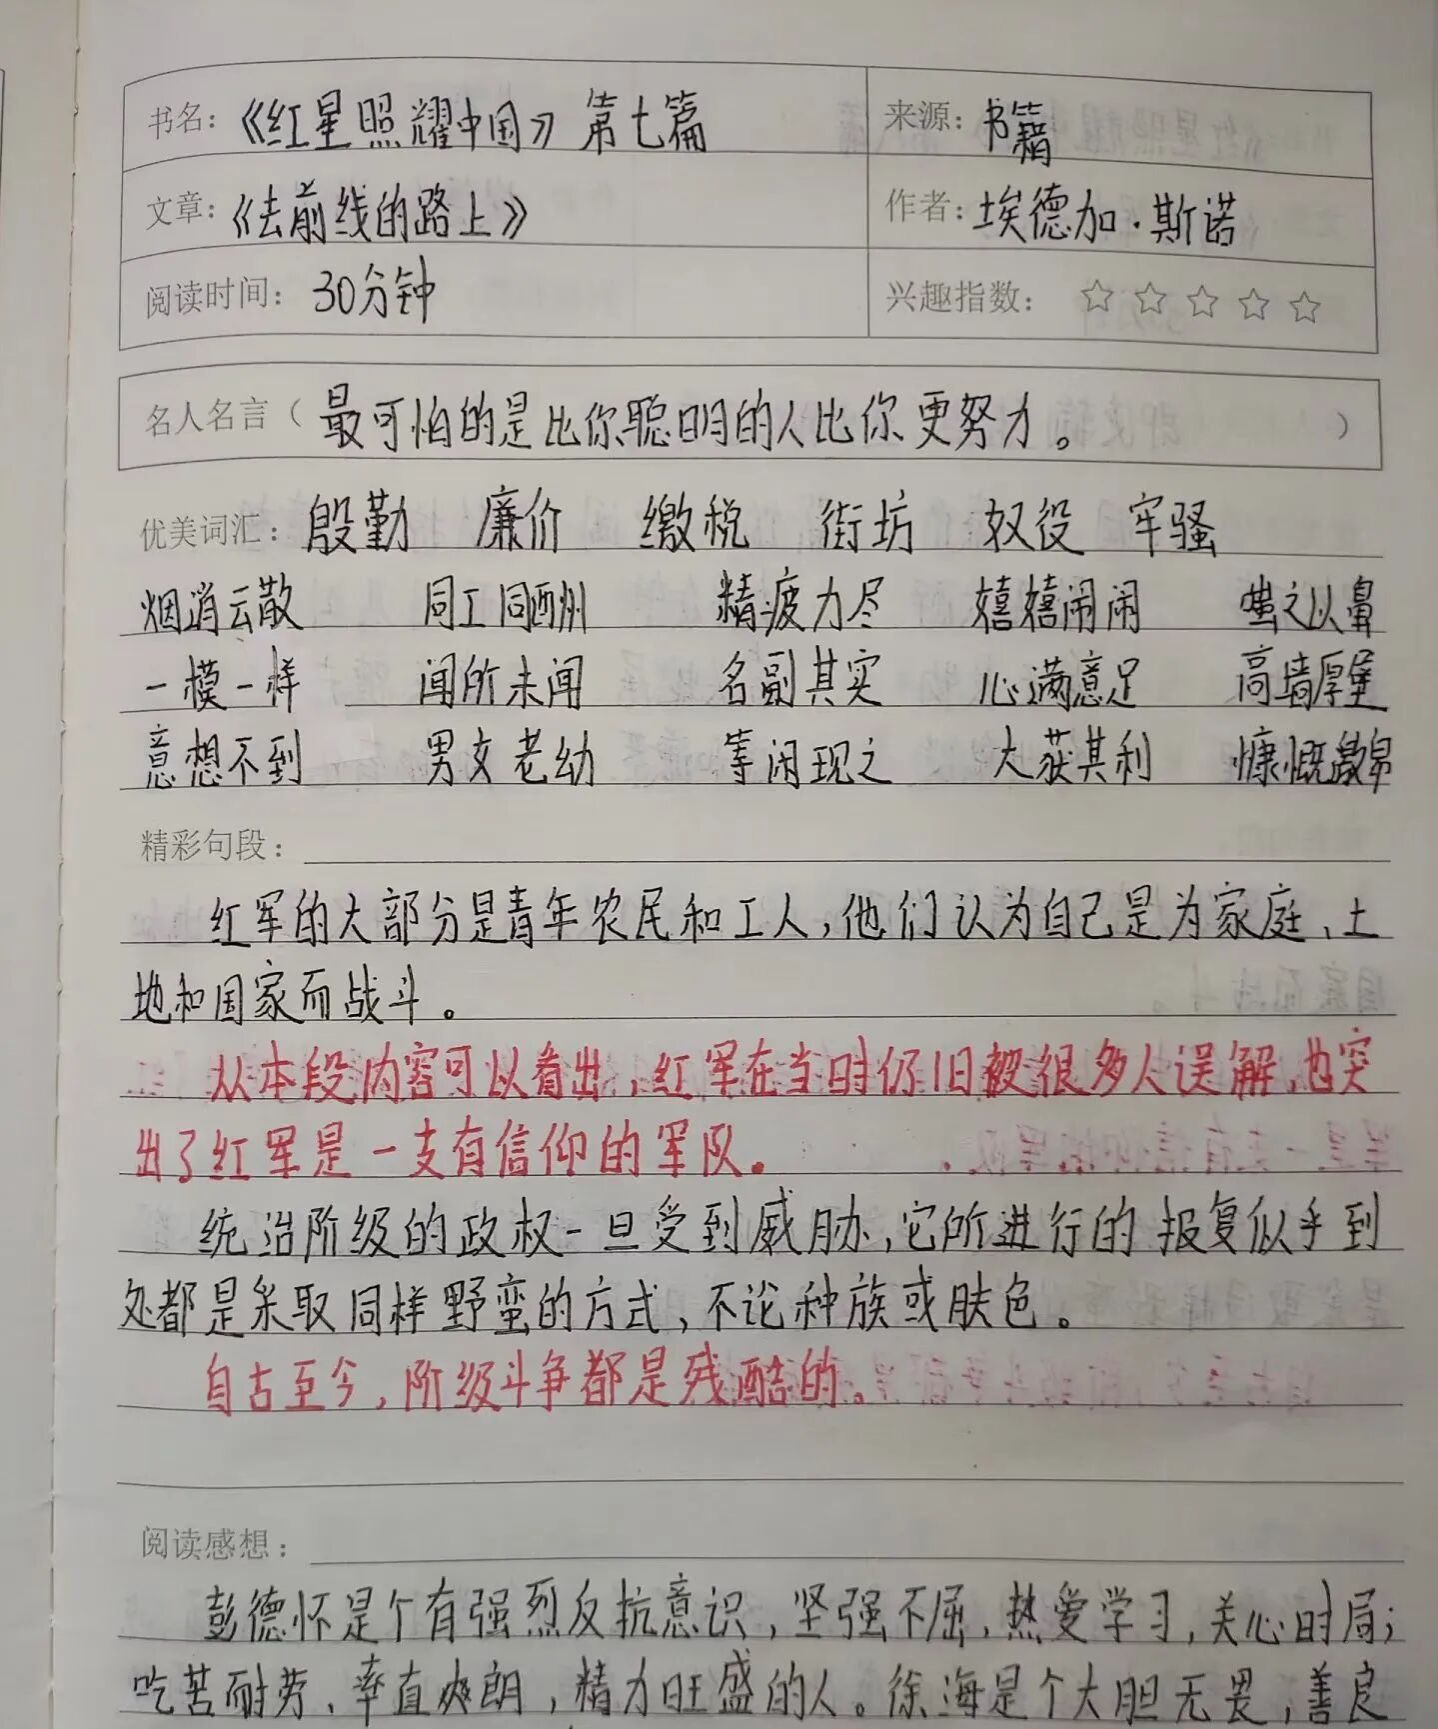 书名：《红星照耀中国》第七篇 来源：书籍
文章：《去前线的路上》 作者：埃德加·斯诺
阅读时间：30分钟 兴趣指数：☆☆☆☆☆
名人名言（最可怕的是比你聪明的人比你更努力。）
优美词汇：殷勤 廉价 缴税 街坊 奴役 牢骚
烟消云散 同工同酬 精疲力尽 嬉嬉闹闹 嗤之以鼻
一模一样 闻所未闻 名副其实 心满意足 高墙厚垒
意想不到 男女老幼 等闲现之 大获其利 慷慨激昂
精彩句段：
红军的大部分是青年农民和工人，他们认为自己是为家庭、土
地和国家而战斗。
从本段内容可以看出，红军在当时仍旧被很多人误解，也突
出了红军是一支有信仰的军队。
统治阶级的政权一旦受到威胁，它所进行的报复似乎到
处都是采取同样野蛮的方式，不论种族或肤色。
自古至今，阶级斗争都是残酷的。
阅读感想：
彭德怀是个有强烈反抗意识，坚强不屈，热爱学习，关心时局；
吃苦耐劳、率直爽朗，精力旺盛的人。徐海是个大胆无畏，善良